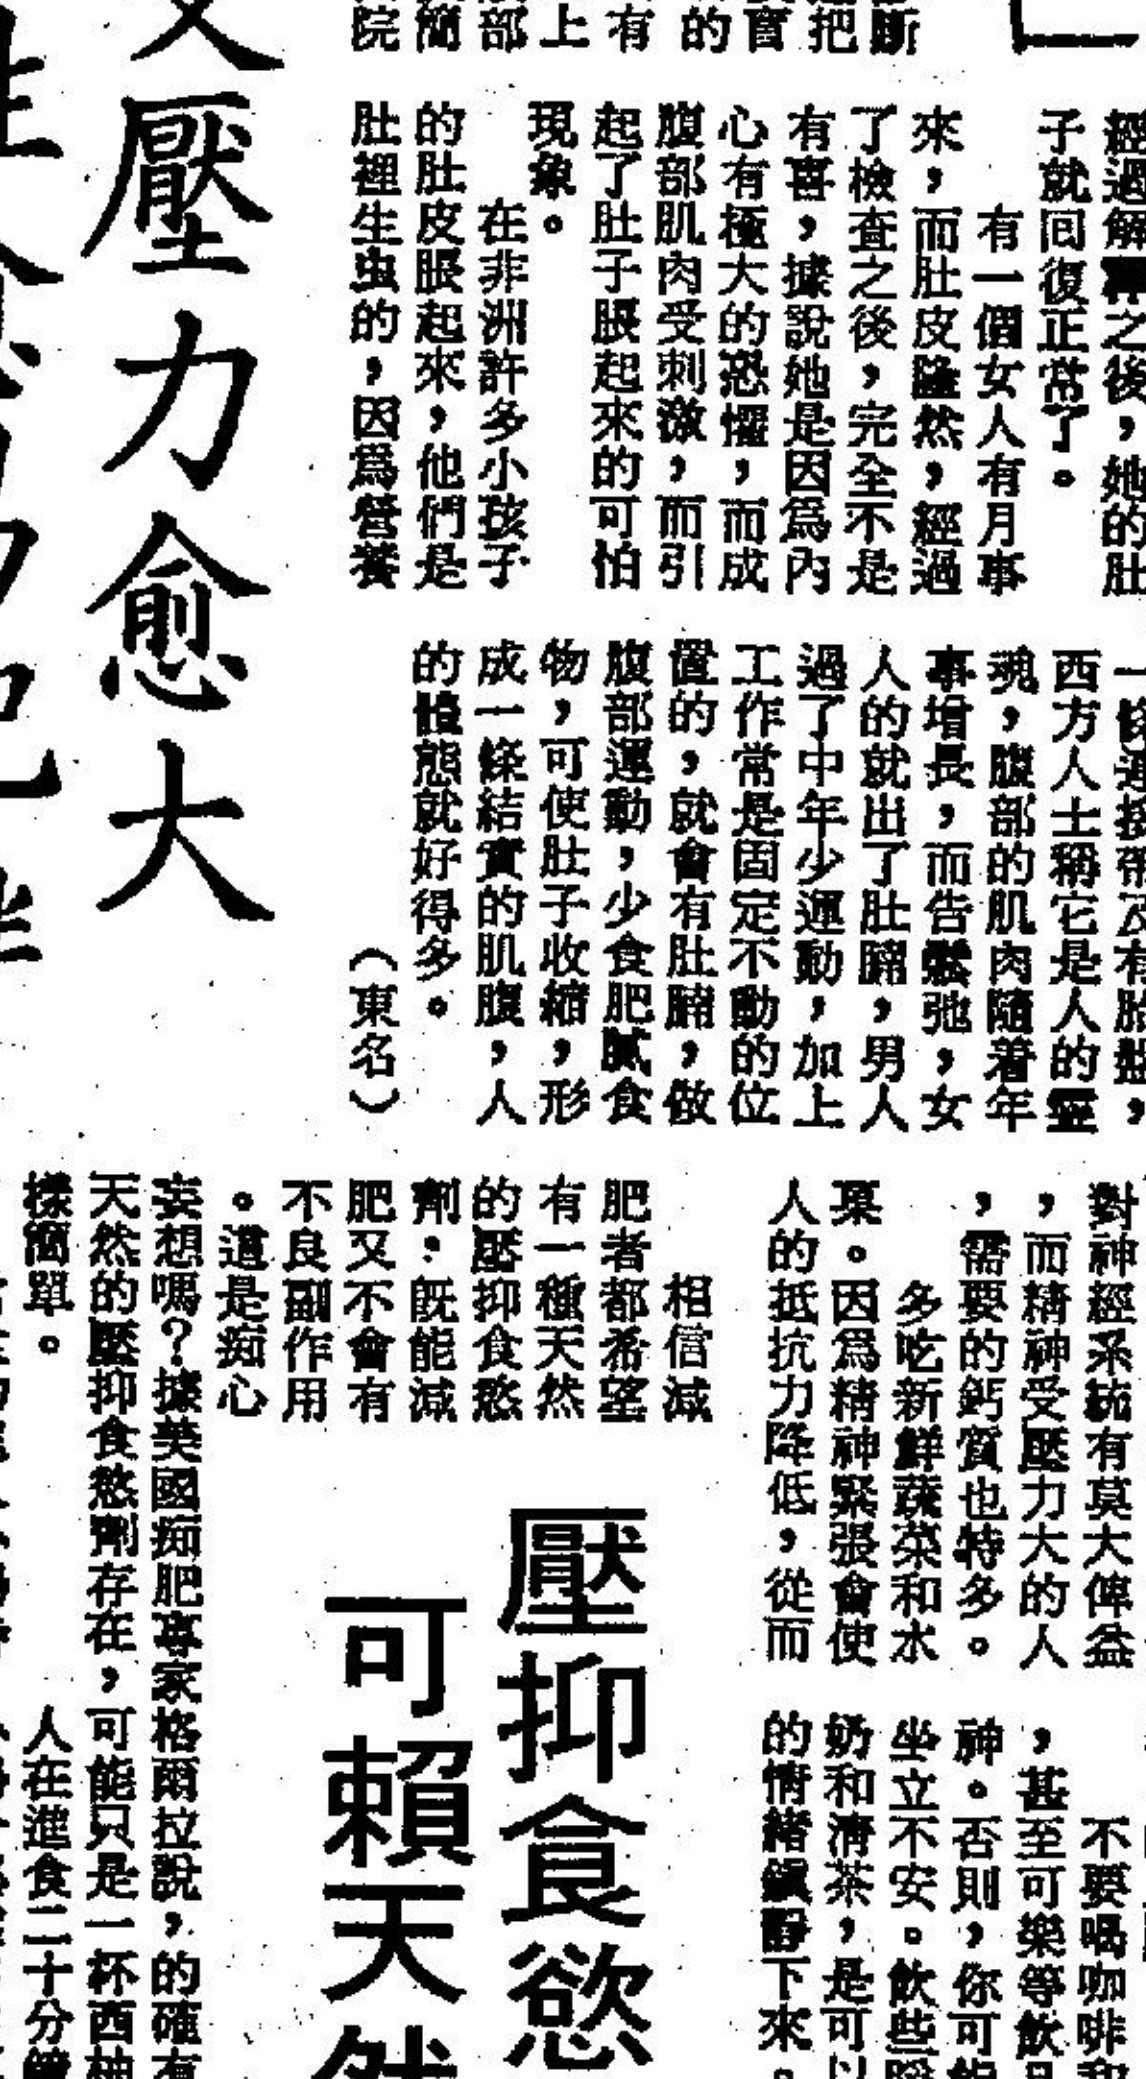 斷
把
的
有
上
部
簡
院
之後，她的肚
子就回復正常了。
有一個女人有月事
來，而肚皮隆然，經過
了檢查之後，完全不是
有喜，據說她是因為內
心有極大的恐懼，而成
腹部肌肉受刺激，而引
起了肚子脹起來的可怕
現象。
在非洲許多小孩子
的肚皮脹起來，他們是
肚裡生虫的，因爲營養
西方人士稱它是人的靈
魂，腹部的肌肉隨着年
事增長，而告鬆弛，女
人的就出了肚腩，男人
過了中年少運動，加上
工作常是固定不動的位
置的，就會有肚腩，做
腹部運動，少食肥膩食
物，可使肚子收縮，形
成一條結實的肌腹，人
的體態就好得多。
（東名）
壓力愈大
對神經系統有莫大俾益
，而精神受壓力大的人
，需要的鈣質也特多。
多吃新鮮蔬菜和水
菓。因爲精神緊張會使
人的抵抗力降低，從而
不要喝咖啡和
，甚至可樂等飲品
神。否則，你可能
坐立不安。飲些
奶和清茶，是可以
的情緒鎮靜下來。
壓抑食慾
可賴天然
相信減
肥者都希望
有一種天然
的壓抑食慾
劑：既能減
肥又不會有
不良副作用
。這是痴心
妄想嗎？據美國痴肥專家格爾拉說，的確有
天然的壓抑食慾劑存在，可能只是一杯西柚
樣簡單。
人在進食二十分鐘